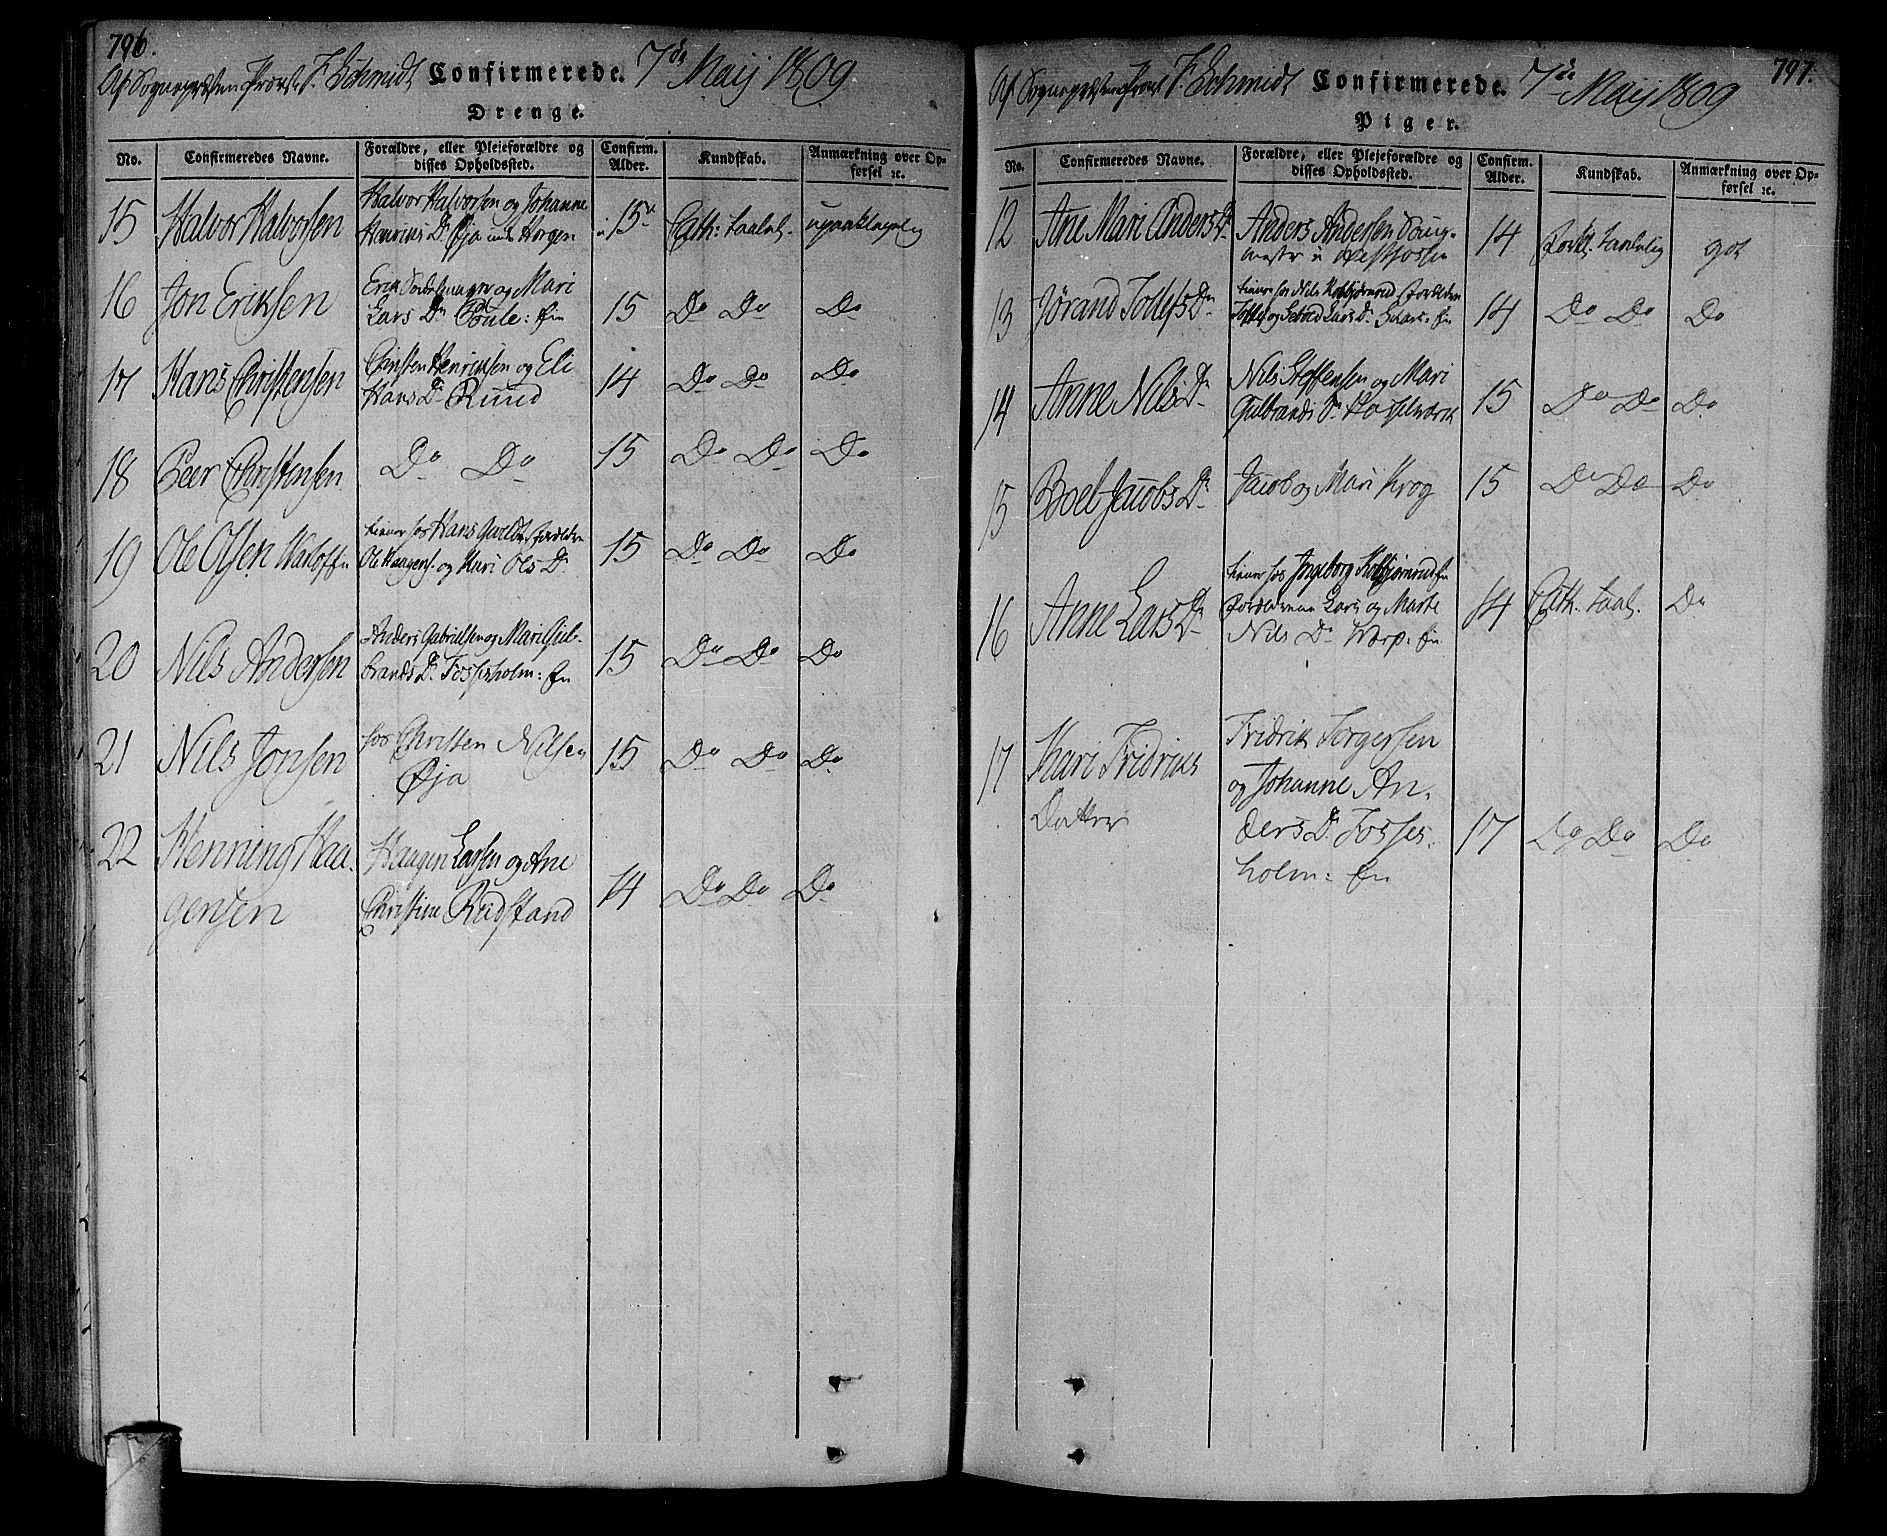 796.
Af Sognepræsten Provst F. Schmidt Confirmerede. 7de Maij 1809
Drenge.
No. Confirmeredes Navne. Forældre, eller Plejeforældre og disses Opholdssted. Confirm. Alder. Kundskab. Anmærkning over Opførsel ꝛc.
15 Halvor Halvorsen Halvor Halvorsen og Johanne
Henriks Dr Øja Horgen 15 Cath: taalel. upaaklagelig
16 Jon Eriksen Erik og Mari
Lars Dr 15 Do Do Do
17 Hans Christensen Christen Henriksen og Eli
Hans Dr Ruud 14 Do Do Do
18 Peer Christensen Do Do 15 Do Do Do
19 Ole Olsen tiener hos Hans Forældre
Ole Haagens. og Kari Ols Dr 15 Do Do Do
20 Nils Andersen Anders Gabrielsen og Mari Gul-
brands Dr Fossesholm: En 15 Do Do Do
21 Nils Jonsen hos Christen Nilsen
Øja 15 Do Do Do
22 Henning Haa-
gensen Haagen Larsen og Ane
Christine Rudstrand 14 Do Do Do
797.
Af Sognepræsten Provst F. Schmidt Confirmerede. 7de Maij 1809
Piger.
No. Confirmeredes Navne. Forældre, eller Plejeforældre og disses Opholdsted. Confirm. Alder. Kundskab. Anmærkning over Opførsel ꝛc.
12 Ane Mari Anders Dr Anders Andersen Saug-
mester i Hestfossen 14 Forkl. taalelig god
13 Jørand Tollefs Dr tiener hos Nils Kolbjørnrud Forældre
Tollef og Lars Dr 14 Do Do Do
14 Anne Nils Dr Nils Steffensen og Mari
Gulbrands Dr 15 Do Do Do
15 Boel Jacobs Dr Jacob og Mari Krog 15 Do Do Do
16 Anne Lars Dr tiener hos Ingeborg Kolbjørnrud En
Forældrene Lars og Marte
Nils Dr Worp: En 14 Cath. taal. Do
17 Kari Fridriks
Datter Fridrik Torgersen
og Johanne An-
ders Dr Fosses-
holm: En 17 Do Do Do